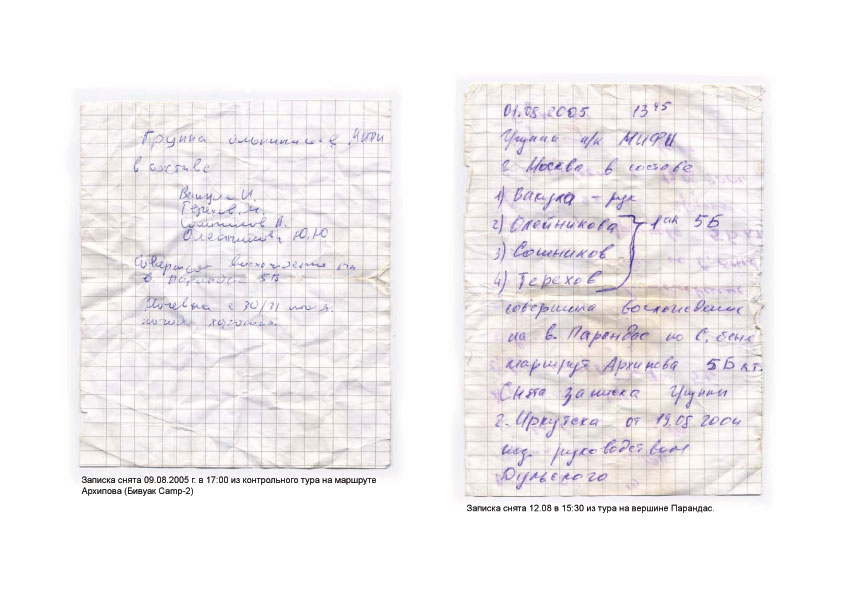 Группа альпинистов МИФИ
в составе
Вакула И.
Терехов М.
Сошников А.
Олейникова Ю.Ю
Совершает восхождение на
в Парандас 5Б
Ночёвка с 30/31 июля
погода хорошая.
Записка снята 09.08.2005 г. в 17:00 из контрольного тура на маршруте
Архипова (Бивуак Camp-2)
01.08 2005 13 45
Группа а/к МИФИ
г. Москва в составе
1) Вакула - рук
2) Олейникова
3) Сошников
4) Терехов
1 ак 5Б
совершила восхождение
на в. Парандас по С. стене
маршрут Архипова 5Б к.т.
Снята записка группы
г. Иркутска от 19.08.2004
под руководством
Дульского
Записка снята 12.08 в 15:30 из тура на вершине Парандас.